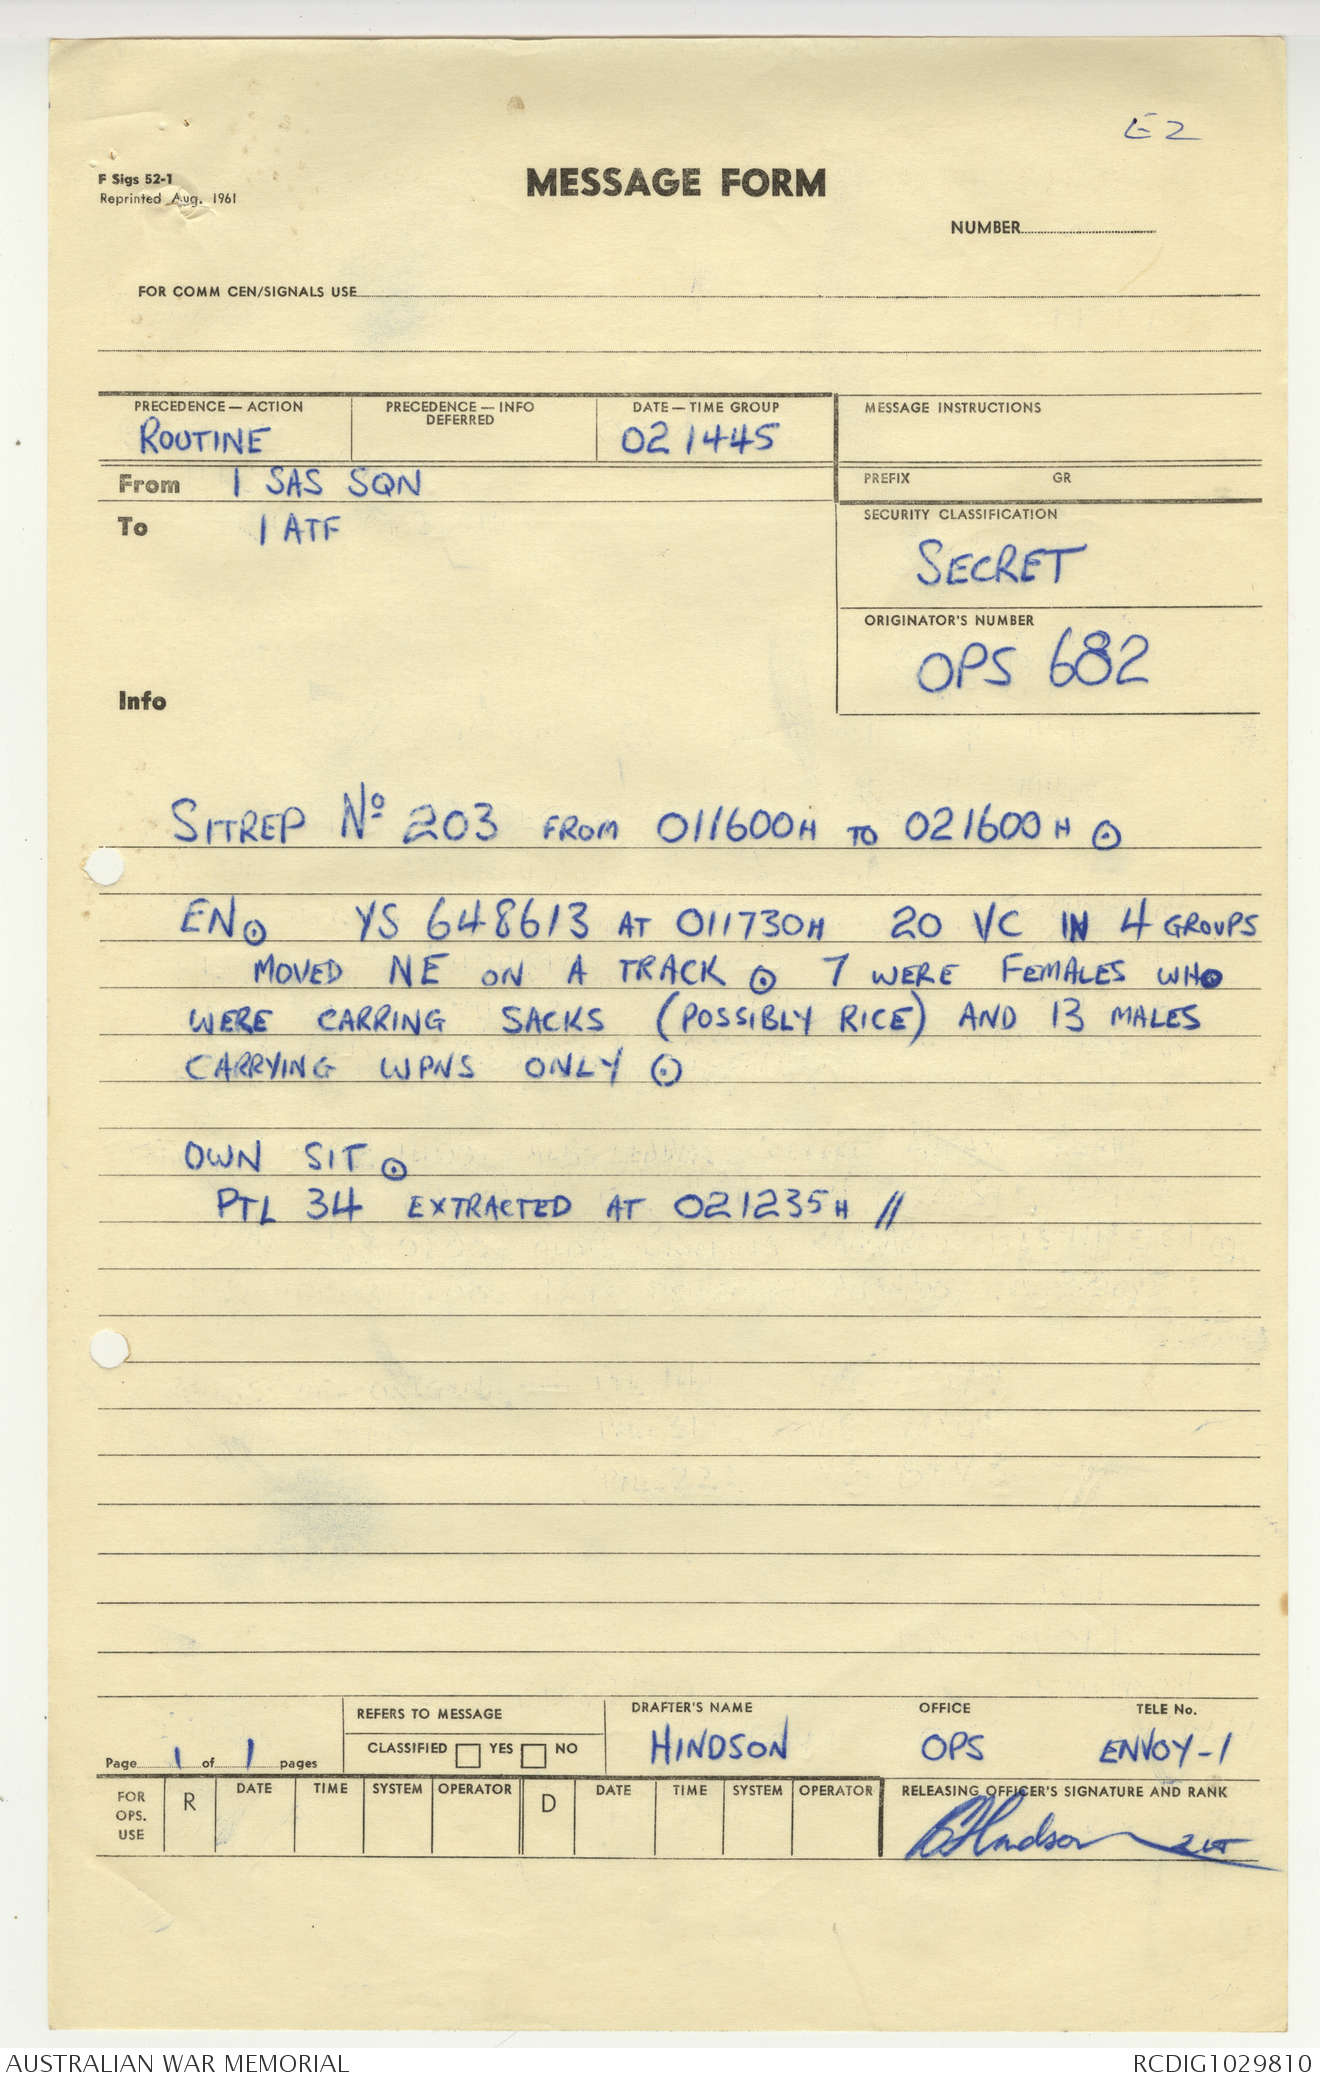 E2
F Sigs 52-1
Reprinted Aug. 1961
MESSAGE FORM
NUMBER
FOR COMM CEN/SIGNALS USE
PRECEDENCE — ACTION
ROUTINE
PRECEDENCE — INFO
DEFERRED
DATE — TIME GROUP
021445
MESSAGE INSTRUCTIONS
From 1 SAS SQN
PREFIX GR
To 1 ATF
SECURITY CLASSIFICATION
SECRET
ORIGINATOR'S NUMBER
OPS 682
Info
SITREP Nº 203 FROM 011600H TO 021600H ⊙
EN ⊙ YS 648613 AT 011730H 20 VC IN 4 GROUPS
MOVED NE ON A TRACK ⊙ 7 WERE FEMALES WHO
WERE CARRING SACKS (POSSIBLY RICE) AND 13 MALES
CARRYING WPNS ONLY ⊙
OWN SIT ⊙
PTL 34 EXTRACTED AT 021235H //
Page 1 of 1 pages
REFERS TO MESSAGE
CLASSIFIED YES NO
DRAFTER'S NAME
HINDSON
OFFICE
OPS
TELE No.
ENVOY-1
FOR OPS. USE
R DATE TIME SYSTEM OPERATOR
D DATE TIME SYSTEM OPERATOR
RELEASING OFFICER'S SIGNATURE AND RANK
Hindson 2LT
AUSTRALIAN WAR MEMORIAL
RCDIG1029810